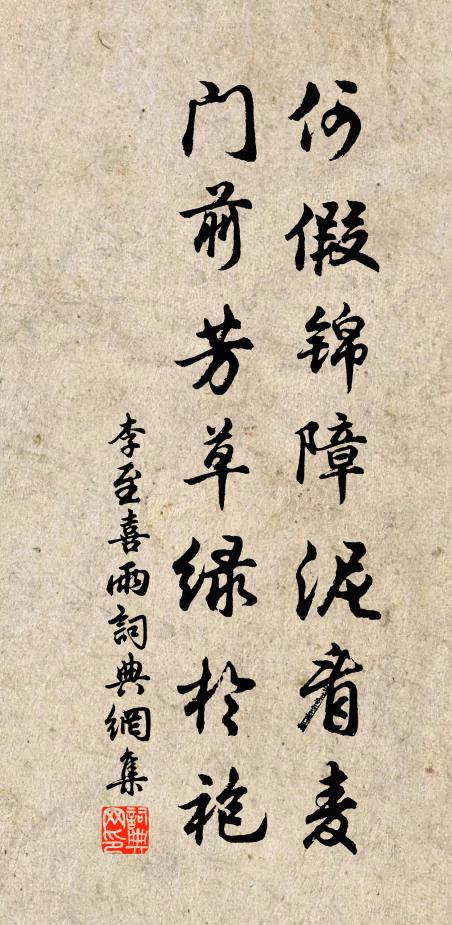 何假锦障泥看麦
门前芳草绿於袍
李至喜雨詞典網集
詞典網印